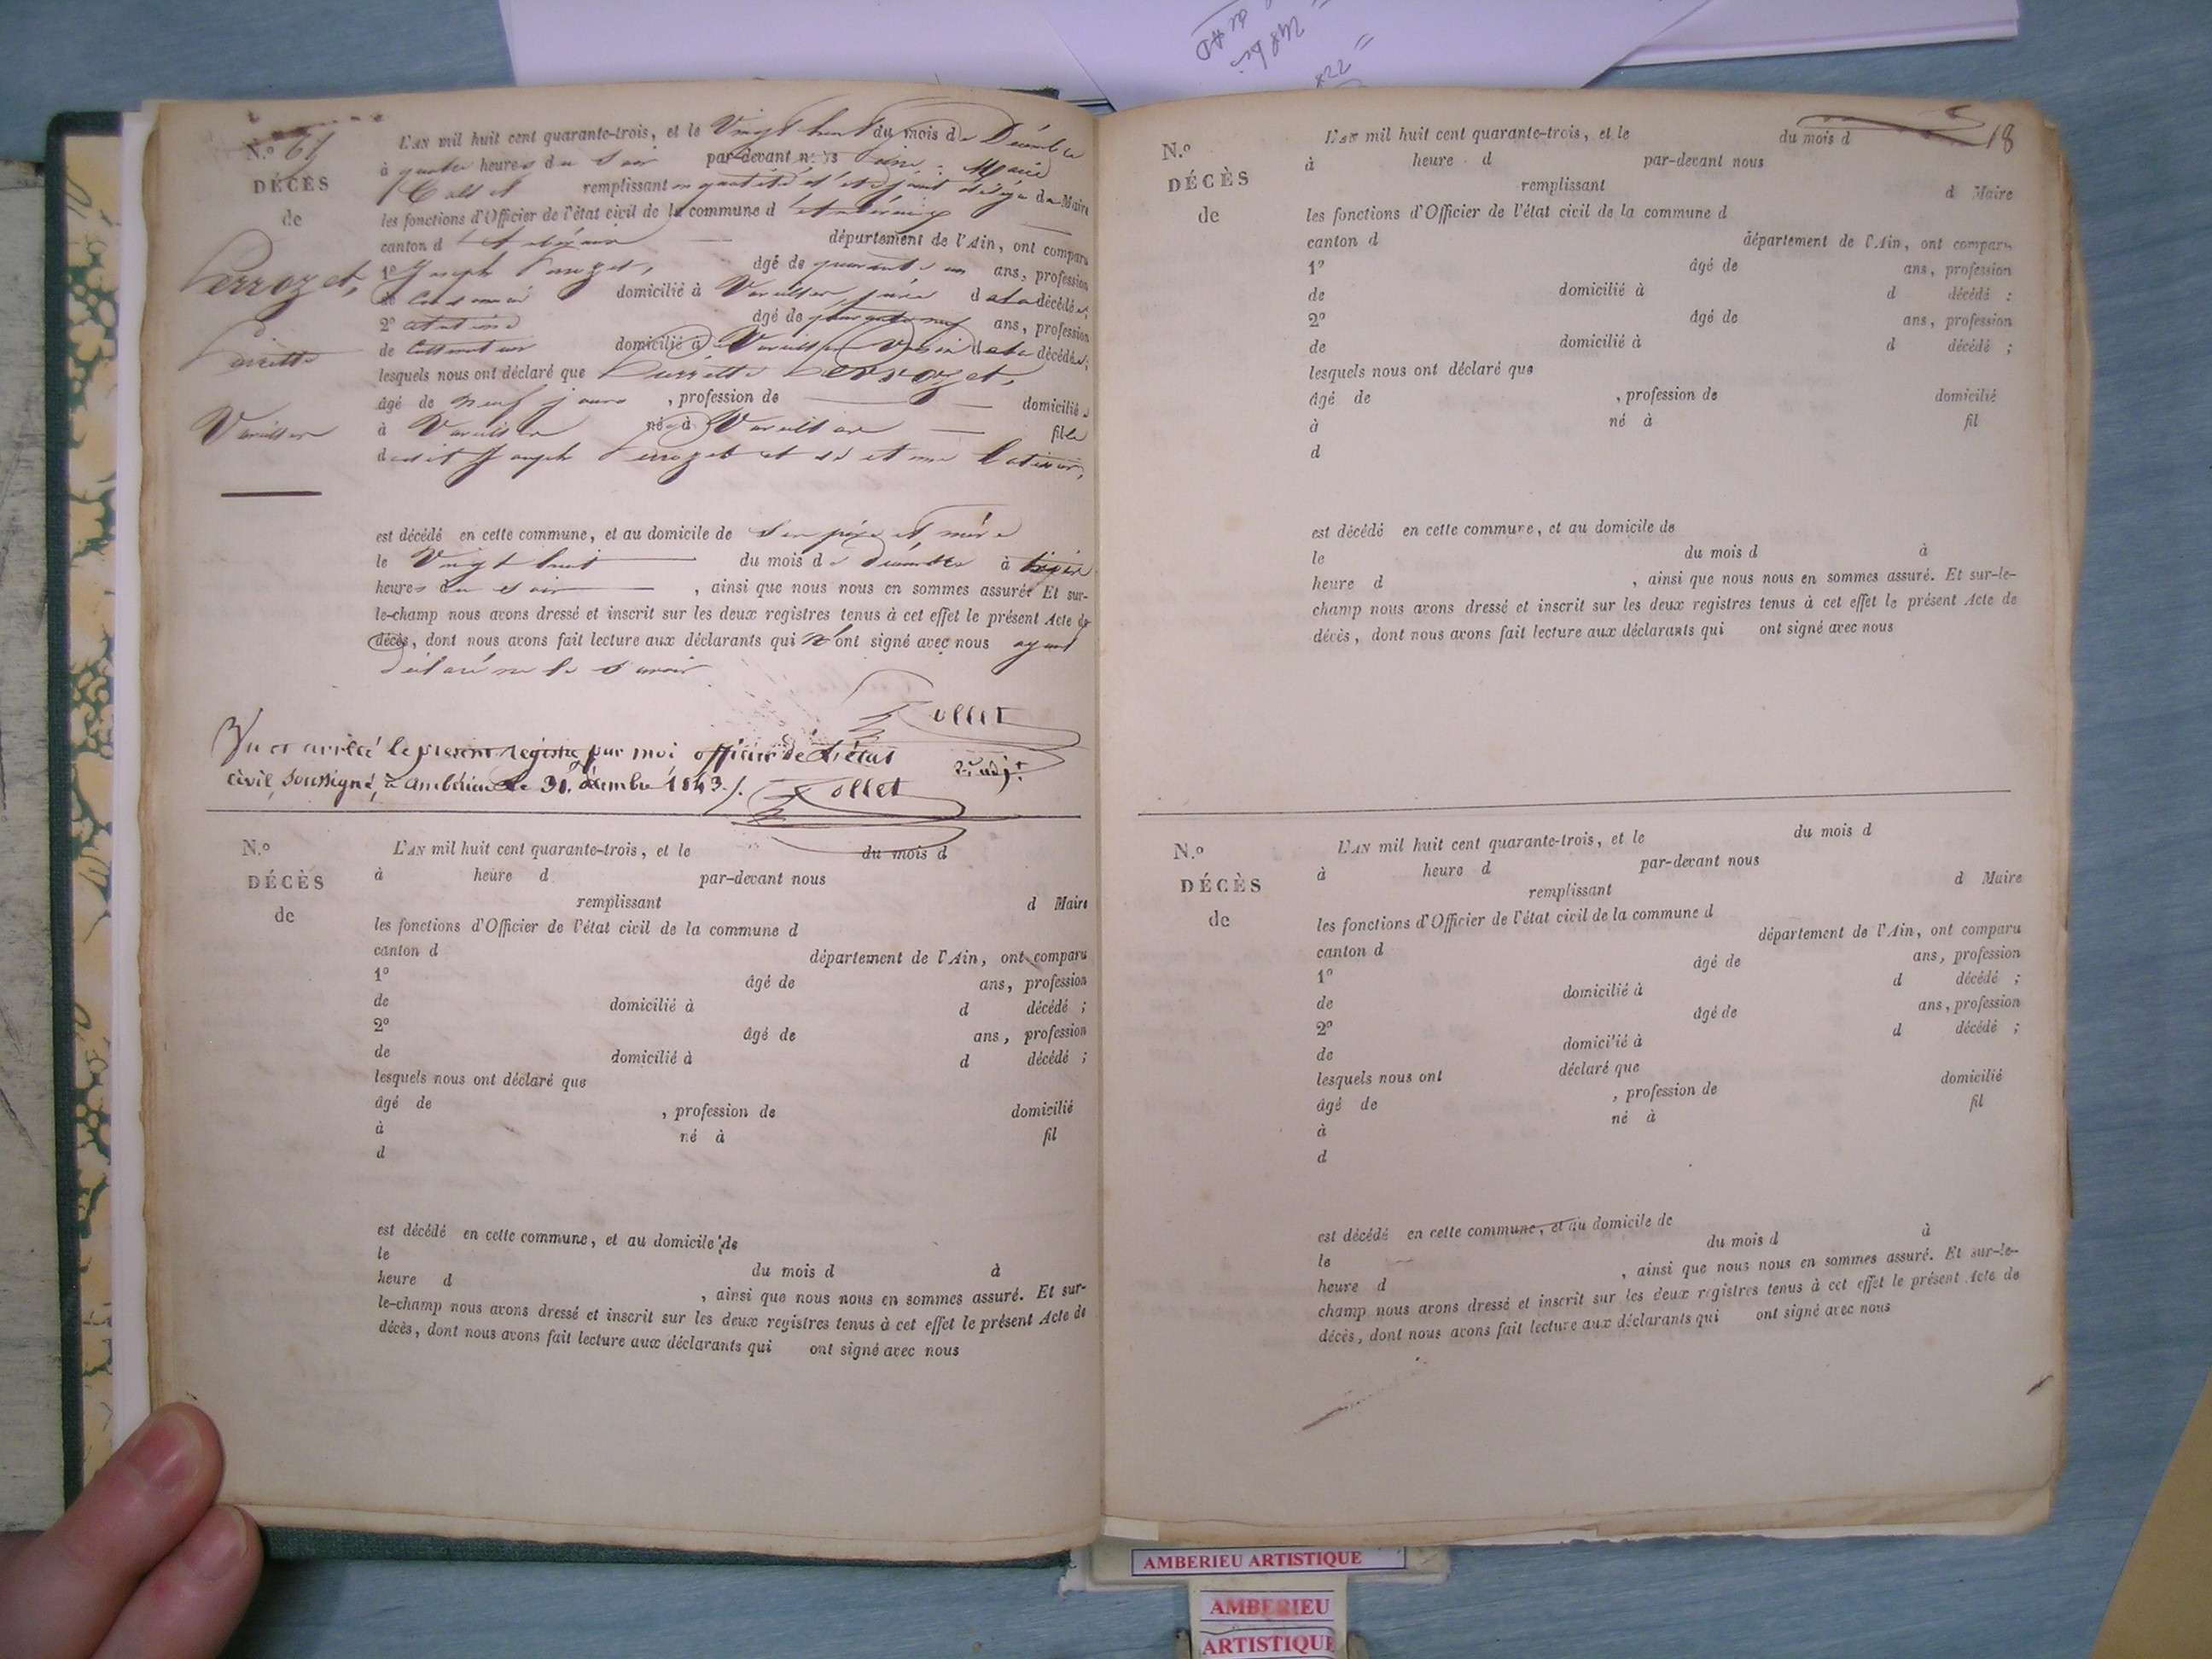 N.º 67
DÉCÈS
de
Perrozet,
Pierrette
Vareilles
L'AN mil huit cent quarante-trois, et le Vingt huit du mois de Décembre
à quatre heures du soir par-devant nous
remplissant en qualité d'adjoint délégué du Maire
les fonctions d'Officier de l'état civil de la commune d'Ambérieux
canton d'Ambérieux département de l'Ain, ont comparu
1º Joseph Perrozet, âgé de quarante un ans, profession
de domicilié à Vareilles, père de la décédée;
2º Antoine âgé de ans, profession
de Cultivateur domicilié à Vareilles Voisin de la décédée;
lesquels nous ont déclaré que Pierrette Perrozet,
âgé de neuf jours, profession de domiciliée
à Vareilles née à Vareilles fille
dudit Joseph Perrozet et de
est décédé en cette commune, et au domicile de ses père et mère
le Vingt huit du mois de décembre à
heures du soir, ainsi que nous nous en sommes assuré. Et sur-
le-champ nous avons dressé et inscrit sur les deux registres tenus à cet effet le présent Acte de
décès, dont nous avons fait lecture aux déclarants qui n'ont signé avec nous ayant
déclaré ne le savoir
Collet
2e adjt
Vu et arrêté le présent registre par moi officier de l'état
civil, soussigné, à Ambérieux le 31 décembre 1843./. Collet
N.º
DÉCÈS
de
L'AN mil huit cent quarante-trois, et le du mois d
à heure d par-devant nous
remplissant d Maire
les fonctions d'Officier de l'état civil de la commune d
canton d département de l'Ain, ont comparu
1º âgé de ans, profession
de domicilié à d décédé ;
2º âgé de ans, profession
de domicilié à d décédé ;
lesquels nous ont déclaré que
âgé de , profession de domicilié
à né à fil
d
est décédé en cette commune, et au domicile de
le du mois d à
heure d , ainsi que nous nous en sommes assuré. Et sur-
le-champ nous avons dressé et inscrit sur les deux registres tenus à cet effet le présent Acte de
décès, dont nous avons fait lecture aux déclarants qui ont signé avec nous
18
N.º
DÉCÈS
de
L'AN mil huit cent quarante-trois, et le du mois d
à heure d par-devant nous
remplissant d Maire
les fonctions d'Officier de l'état civil de la commune d
canton d département de l'Ain, ont comparu
1º âgé de ans, profession
de domicilié à d décédé ;
2º âgé de ans, profession
de domicilié à d décédé ;
lesquels nous ont déclaré que
âgé de , profession de domicilié
à né à fil
d
est décédé en cette commune, et au domicile de
le du mois d à
heure d , ainsi que nous nous en sommes assuré. Et sur-le-
champ nous avons dressé et inscrit sur les deux registres tenus à cet effet le présent Acte de
décès, dont nous avons fait lecture aux déclarants qui ont signé avec nous
N.º
DÉCÈS
de
L'AN mil huit cent quarante-trois, et le du mois d
à heure d par-devant nous
remplissant d Maire
les fonctions d'Officier de l'état civil de la commune d
canton d département de l'Ain, ont comparu
1º âgé de ans, profession
de domicilié à d décédé ;
2º âgé de ans, profession
de domicilié à d décédé ;
lesquels nous ont déclaré que
âgé de , profession de domicilié
à né à fil
d
est décédé en cette commune, et au domicile de
le du mois d à
heure d , ainsi que nous nous en sommes assuré. Et sur-le-
champ nous avons dressé et inscrit sur les deux registres tenus à cet effet le présent Acte de
décès, dont nous avons fait lecture aux déclarants qui ont signé avec nous
AMBERIEU ARTISTIQUE
AMBERIEU
ARTISTIQUE